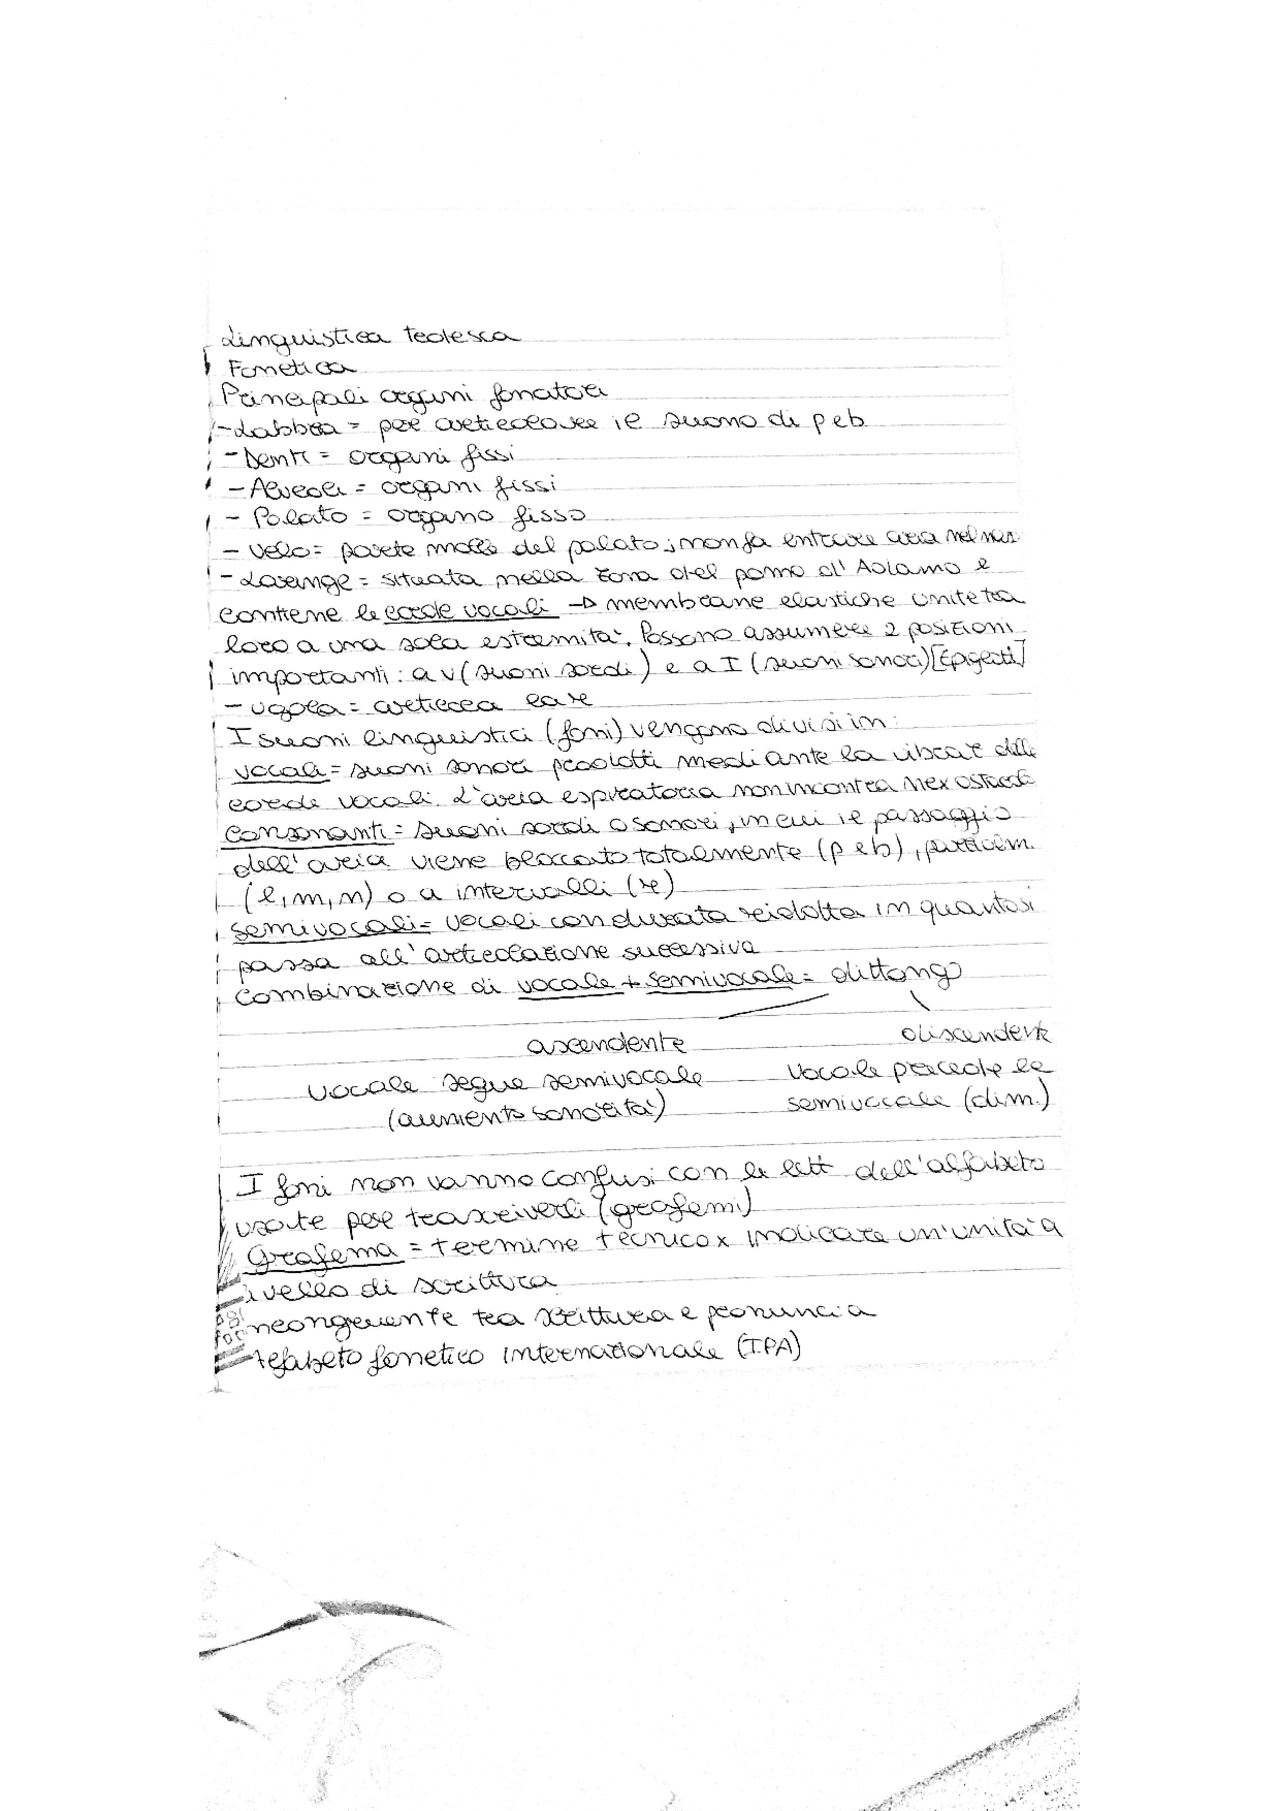 Linguistica tedesca
Fonetica
Principali organi fonatori
- Labbra = per articolare il suono di p e b
- Denti = organi fissi
- Alveoli = organi fissi
- Palato = organo fisso
- Velo = parete molle del palato; non fa entrare aria nel
- Laringe = situata nella zona del pomo d'Adamo e
contiene le corde vocali → membrane elastiche unite tra
loro a una sola estremità. Possono assumere 2 posizioni
importanti: a V (suoni sordi) e a I (suoni sonori)
- Ugola = articola la r
I suoni linguistici (foni) vengono divisi in:
vocali = suoni sonori prodotti mediante la vibraz delle
corde vocali. L'aria espiratoria non incontra nex ostacoli
consonanti = suoni sordi o sonori, in cui il passaggio
dell'aria viene bloccato totalmente (p e b), parzialm.
(l, m, n) o a intervalli (r)
semivocali = vocali con durata ridotta in quanto si
passa all'articolazione successiva
Combinazione di vocale + semivocale = dittongo
ascendente discendente
vocale segue semivocale vocale precede la
(aumento sonorità) semivocale (dim.)
I foni non vanno confusi con le lett dell'alfabeto
usate per trascriverli (grafemi)
Grafema = termine tecnico x indicare un'unità a
livello di scrittura
incongruente tra scrittura e pronuncia
Alfabeto fonetico internazionale (IPA)